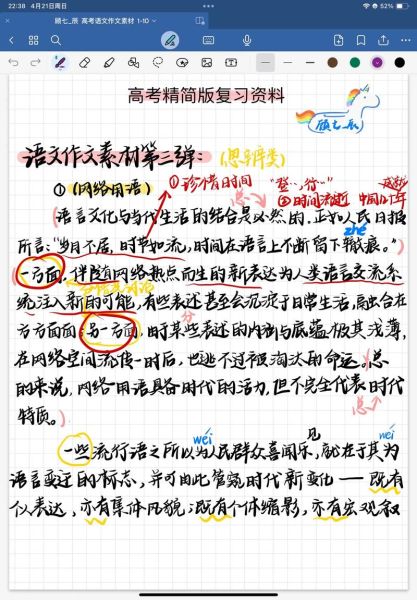 22:38 4月21日周日
52%
顾七_辰 高考语文作文素材 1-10
高考精简版复习资料
顾七辰
语文作文素材第三弹：（思辨类）
①（网络用语）
①珍惜时间 "登…行…"
②时间流逝
语言文化与当代生活的结合是必然的，正如人民日报
zhé
所言："岁月不居，时节如流，时间在语言上不断留下辙痕。"
一方面，伴随网络热点而生的新表达为人类语言交流系
统注入新的可能，有些表述甚至会沉淀于日常生活，融合在
方方面面；另一方面，时某些表述的内涵与底蕴极其浅薄，
分
在网络空间流传一时后，也逃不过被淘汰的命运。总
的来说，网络用语具备时代的活力，但不完全代表时代
特质。
总
wéi
wéi
一些流行语之所以为人民群众喜闻乐见，就在于其为
语言变迁的标志，并可由此管窥时代新变化——既有
仪表达，亦有集体风貌；既有个体缩影，亦有宏观叙